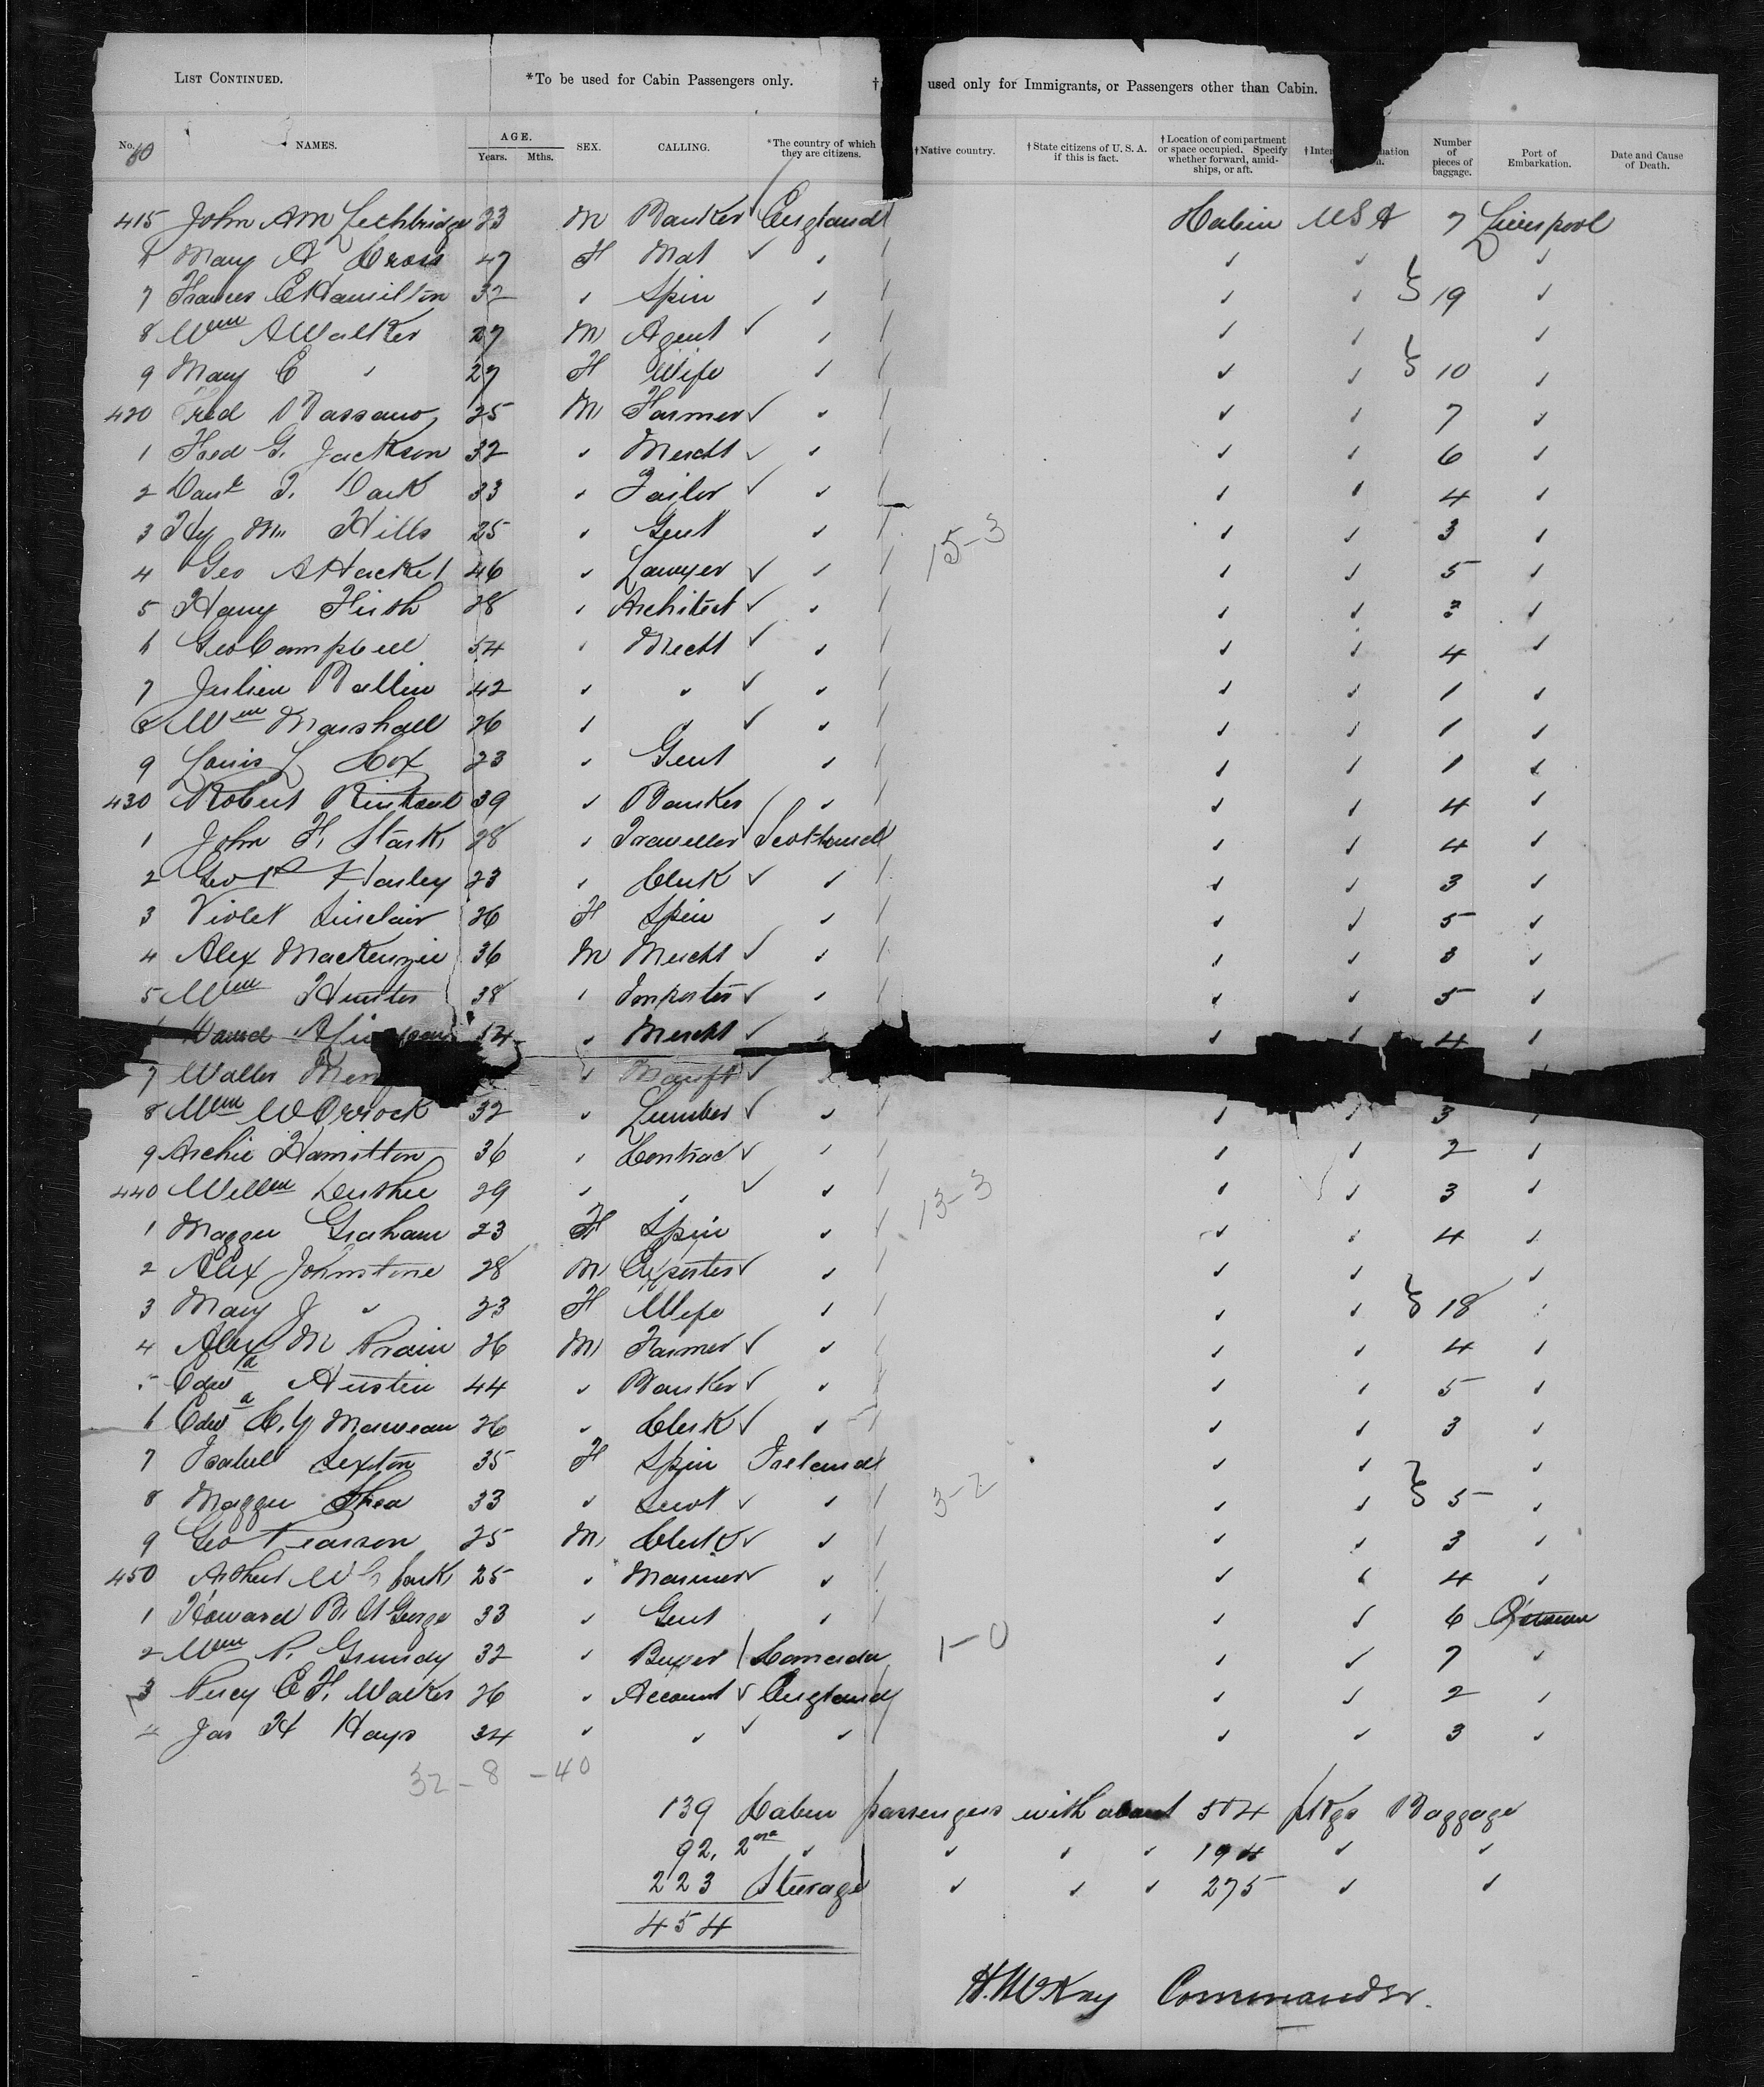 LIST CONTINUED. *To be used for Cabin Passengers only. † used only for Immigrants, or Passengers other than Cabin.
No. NAMES. AGE. Years. Mths. SEX. CALLING. *The country of which they are citizens. †Native country. †State citizens of U. S. A. if this is fact. †Location of compartment or space occupied. Specify whether forward, amidships, or aft. Number of pieces of baggage. Port of Embarkation. Date and Cause of Death.
415 John AM Lethbridge 33 M Banker England Cabin USA 7 Liverpool
6 Mary A Cross 47 F Mat ✓
7 Frances E Hamilton 32 ✓ Spin 19
8 Wm A Walker 27 M Agent ✓
9 Mary E ✓ 27 F Wife 10
420 Fred Bassano 25 M Farmer ✓ 7
1 Fred G. Jackson 32 ✓ Mercht ✓ 6
2 Danl T. Dark 33 ✓ Tailor ✓ 4
3 Hy Wm Hills 25 ✓ Gent 3
15-3
4 Geo A Hacket 46 ✓ Lawyer ✓ 5
5 Harry Hirsh 28 ✓ Architect ✓
6 Geo Campbell 54 ✓ Mercht ✓ 4
7 Julien Ballin 42 ✓ ✓ ✓ 1
8 Wm Marshall 26 ✓ ✓ ✓ 1
9 Louis L Cox 23 ✓ Gent 1
430 Robert Rintoul 39 ✓ Banker 4
1 John F. Stark 28 ✓ Traveller Scotland 4
2 Geo P Harley 23 ✓ Clerk ✓ 3
3 Violet Sinclair 26 F Spin 5
4 Alex MacKenzie 36 M Mercht ✓ 3
5 Wm Hunter 38 ✓ Importer ✓ 5
David 54 ✓ Mercht ✓ 4
7 Walter ✓ Manft ✓
8 Wm W Orrock 32 ✓ Lumber ✓ 3
9 Archie Hamilton 36 ✓ Contrac ✓ 2
440 29 ✓ ✓ ✓ 3
13-3
1 Maggie Graham 23 F Spin 4
2 Alex Johnstone 28 M Exporter ✓
3 Mary J ✓ 23 F Wife 18
4 Alex M Prain 26 M Farmer ✓ 4
5 Edwd Austin 44 ✓ Banker ✓ 5
6 Edwd C. Y 26 ✓ Clerk ✓ 3
7 Isabel Sexton 35 F Spin Ireland
8 Maggie Shea 33 ✓ Servt ✓ 5
3-2
9 Geo Pearson 25 M Clerk ✓ 3
450 Arthur 25 ✓ Mariner ✓ 4
1 Howard B. St George 33 ✓ Gent 6 Q'stown
2 Wm P. Grundy 32 ✓ Buyer Canada 7
1-0
3 Percy E F. Walker 26 ✓ Account ✓ England 2
4 Jas H Hays 34 ✓ ✓ ✓ 3
32-8-40
139 Cabin passengers with about 504 pkgs Baggage
92. 2nd ✓ ✓ ✓ ✓ 194 ✓ ✓
223 Steerage ✓ ✓ ✓ 275 ✓ ✓
454
H. McKay Commander.